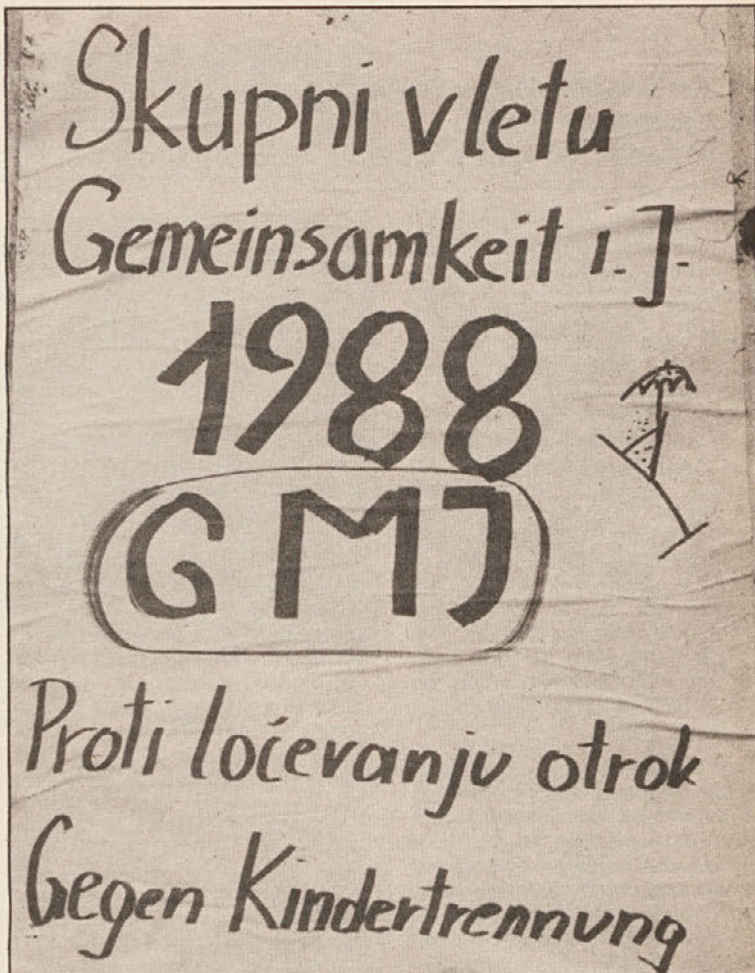 Skupni v letu
Gemeinsamkeit i. J.
1988
GMJ
Proti loćevanju otrok
Gegen Kindertrennung